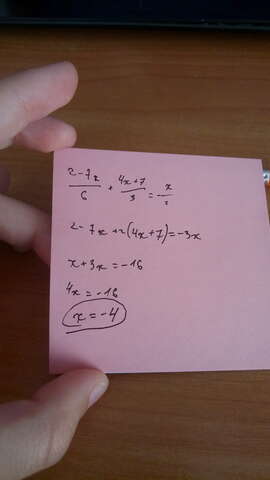 2-7x/6 + 4x+7/3 = -x/2
2-7x+2(4x+7)=-3x
x+3x=-16
4x=-16
x=-4